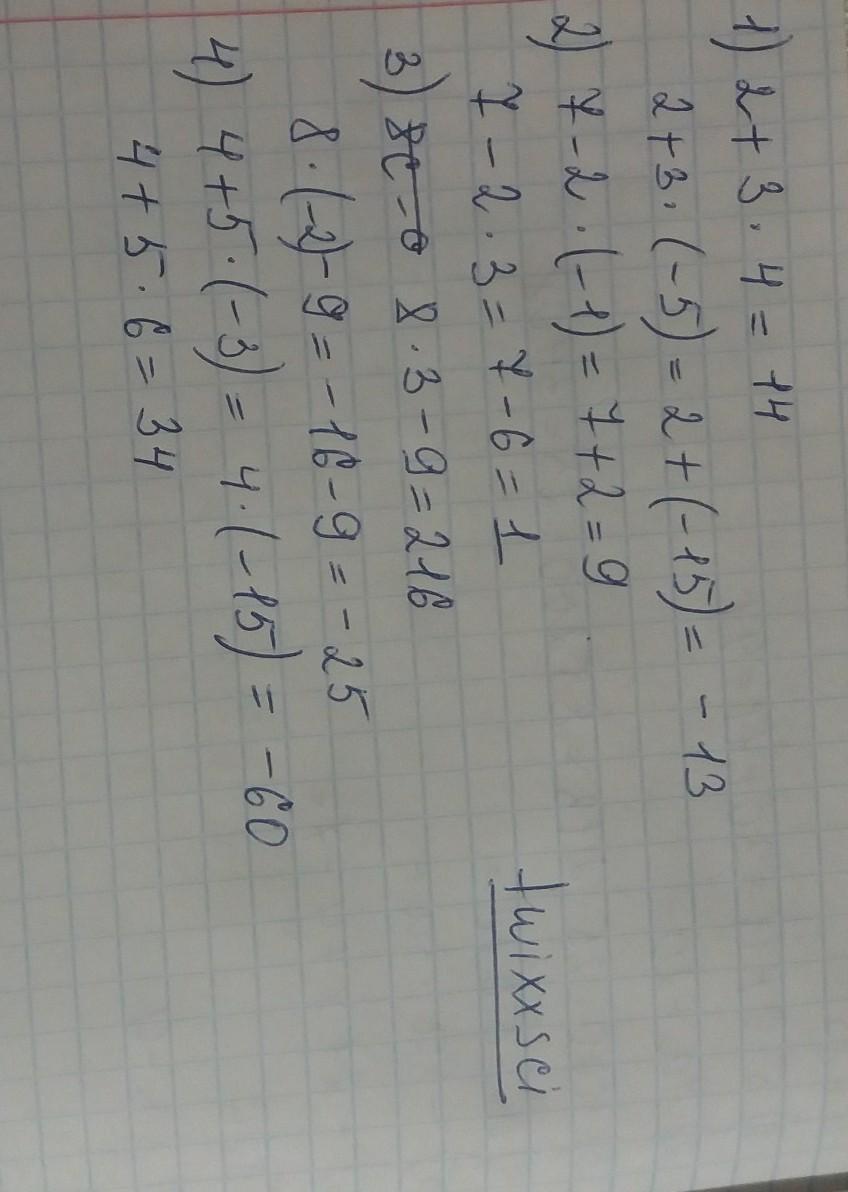 1) 2 + 3 · 4 = 14
2 + 3 · (-5) = 2 + (-15) = -13
2) 7 - 2 · (-1) = 7 + 2 = 9
7 - 2 · 3 = 7 - 6 = 1
3) 8 · 3 - 9 = 216
8 · (-2) - 9 = -16 - 9 = -25
4) 4 + 5 · (-3) = 4 · (-15) = -60
4 + 5 · 6 = 34
twixxsci